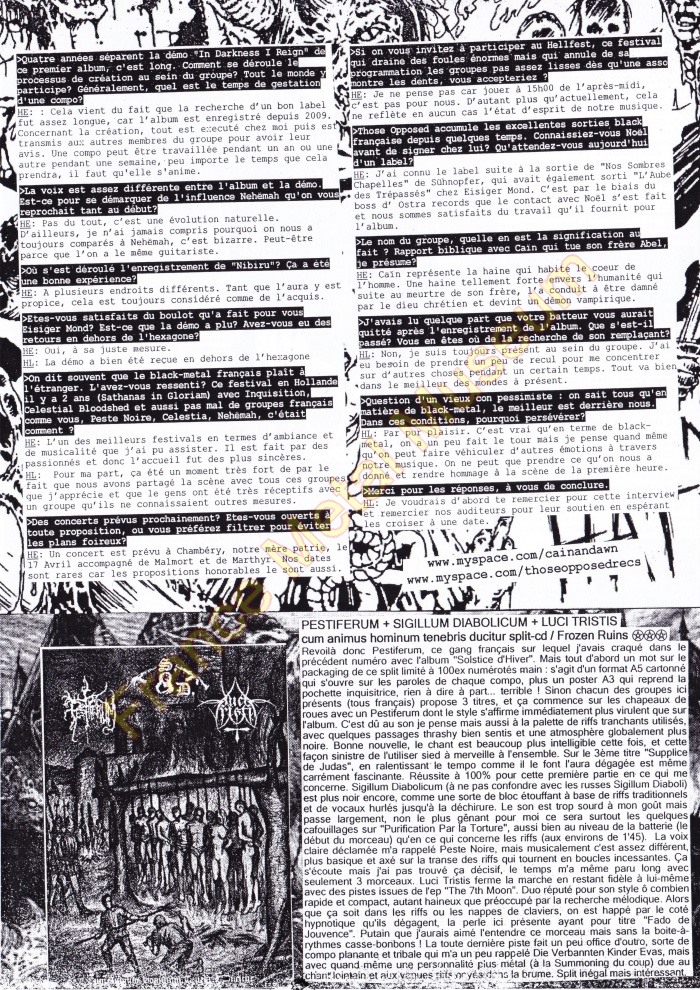 >Quatre années séparent la démo "In Darkness I Reign" de
ce premier album, c'est long. Comment se déroule le
processus de création au sein du groupe? Tout le monde y
participe? Généralement, quel est le temps de gestation
d'une compo?
HE: : Cela vient du fait que la recherche d'un bon label
fut assez longue, car l'album est enregistré depuis 2009.
Concernant la création, tout est exécuté chez moi puis est
transmis aux autres membres du groupe pour avoir leur
avis. Une compo peut être travaillée pendant un an ou une
autre pendant une semaine, peu importe le temps que cela
prendra, il faut qu'elle s'anime.
>La voix est assez différente entre l'album et la démo.
Est-ce pour se démarquer de l'influence Nehëmah qu'on vous
reprochait tant au début?
HE: Pas du tout, c'est une évolution naturelle.
D'ailleurs, je n'ai jamais compris pourquoi on nous a
toujours comparés à Nehëmah, c'est bizarre. Peut-être
parce que l'on a le même guitariste.
>Où s'est déroulé l'enregistrement de "Nibiru"? Ça a été
une bonne expérience?
HE: A plusieurs endroits différents. Tant que l'aura y est
propice, cela est toujours considéré comme de l'acquis.
>Etes-vous satisfaits du boulot qu'a fait pour vous
Eisiger Mond? Est-ce que la démo a plu? Avez-vous eu des
retours en dehors de l'hexagone?
HE: Oui, à sa juste mesure.
HL: La démo a bien été reçue en dehors de l'hexagone
>On dit souvent que le black-metal français plaît à
l'étranger. L'avez-vous ressenti? Ce festival en Hollande
il y a 2 ans (Sathanas in Gloriam) avec Inquisition,
Celestial Bloodshed et aussi pas mal de groupes français
comme vous, Peste Noire, Celestia, Nehëmah, c'était
comment ?
HE: L'un des meilleurs festivals en termes d'ambiance et
de musicalité que j'ai pu assister. Il est fait par des
passionnés et donc l'accueil fut des plus sincères.
HL:  Pour ma part, ça été un moment très fort de par le
fait que nous avons partagé la scène avec tous ces groupes
que j'apprécie et que le gens ont été très réceptifs avec
un groupe qu'ils ne connaissaient outres mesures.
>Des concerts prévus prochainement? Etes-vous ouverts à
toute proposition, ou vous préférez filtrer pour éviter
les plans foireux?
HE: Un concert est prévu à Chambéry, notre mère patrie, le
17 Avril accompagné de Malmort et de Marthyr. Nos dates
sont rares car les propositions honorables le sont aussi.
>Si on vous invitez à participer au Hellfest, ce festival
qui draine des foules énormes mais qui annule de sa
programmation les groupes pas assez lisses dès qu'une asso
montre les dents, vous accepteriez ?
HE: Je ne pense pas car jouer à 15h00 de l'après-midi,
c'est pas pour nous. D'autant plus qu'actuellement, cela
ne reflète en aucun cas l'état d'esprit de notre musique.
>Those Opposed accumule les excellentes sorties black
française depuis quelques temps. Connaissiez-vous Noël
avant de signer chez lui? Qu'attendez-vous aujourd'hui
d'un label?
HE: J'ai connu le label suite à la sortie de "Nos Sombres
Chapelles" de Sühnopfer, qui avait également sorti "L'Aube
des Trépassés" chez Eisiger Mond. C'est par le biais du
boss d' Ostra records que le contact avec Noël s'est fait
et nous sommes satisfaits du travail qu'il fournit pour
l'album.
>Le nom du groupe, quelle en est la signification au
fait ? Rapport biblique avec Caïn qui tue son frère Abel,
je présume?
HE: Caïn représente la haine qui habite le coeur de
l'homme. Une haine tellement forte envers l'humanité qui
suite au meurtre de son frère, l'a conduit à être damné
par le dieu chrétien et devint un démon vampirique.
>J'avais lu quelque part que votre batteur vous aurait
quitté après l'enregistrement de l'album. Que s'est-il
passé? Vous en êtes où de la recherche de son remplaçant?
HL: Non, je suis toujours présent au sein du groupe. J'ai
eu besoin de prendre un peu de recul pour me concentrer
sur d'autres choses pendant un certain temps. Tout va bien
dans le meilleur des mondes à présent.
>Question d'un vieux con pessimiste : on sait tous qu'en
matière de black-metal, le meilleur est derrière nous.
Dans ces conditions, pourquoi persévérer?
HL: Par pur plaisir. C'est vrai qu'en terme de black-
metal, on a un peu fait le tour mais je pense quand même
qu'on peut faire véhiculer d'autres émotions à travers
notre musique. On ne peut que prendre ce qu'on nous a
donné et rendre hommage à la scène de la première heure.
>Merci pour les réponses, à vous de conclure.
HL: Je voudrais d'abord te remercier pour cette interview
et remercier nos auditeurs pour leur soutien en espérant
les croiser à une date.
www.myspace.com/cainandawn
www.myspace.com/thoseopposedrecs
France Metal Museum
PESTIFERUM + SIGILLUM DIABOLICUM + LUCI TRISTIS
cum animus hominum tenebris ducitur split-cd / Frozen Ruins
Revoilà donc Pestiferum, ce gang français sur lequel j'avais craqué dans le
précédent numéro avec l'album "Solstice d'Hiver". Mais tout d'abord un mot sur le
packaging de ce split limité à 100ex numérotés main : s'agit d'un format A5 cartonné
qui s'ouvre sur les paroles de chaque compo, plus un poster A3 qui reprend la
pochette inquisitrice, rien à dire à part... terrible ! Sinon chacun des groupes ici
présents (tous français) propose 3 titres, et ça commence sur les chapeaux de
roues avec un Pestiferum dont le style s'affirme immédiatement plus virulent que sur
l'album. C'est dû au son je pense mais aussi à la palette de riffs tranchants utilisés,
avec quelques passages thrashy bien sentis et une atmosphère globalement plus
noire. Bonne nouvelle, le chant est beaucoup plus intelligible cette fois, et cette
façon sinistre de l'utiliser sied à merveille à l'ensemble. Sur le 3ème titre "Supplice
de Judas", en ralentissant le tempo comme il le font l'aura dégagée est même
carrément fascinante. Réussite à 100% pour cette première partie en ce qui me
concerne. Sigillum Diabolicum (à ne pas confondre avec les russes Sigillum Diaboli)
est plus noir encore, comme une sorte de bloc étouffant à base de riffs traditionnels
et de vocaux hurlés jusqu'à la déchirure. Le son est trop sourd à mon goût mais
passe largement, non le plus gênant pour moi ce sera surtout les quelques
cafouillages sur "Purification Par la Torture", aussi bien au niveau de la batterie (le
début du morceau) qu'en ce qui concerne les riffs (aux environs de 1'45).  La voix
claire déclamée m'a rappelé Peste Noire, mais musicalement c'est assez différent,
plus basique et axé sur la transe des riffs qui tournent en boucles incessantes. Ça
s'écoute mais j'ai pas trouvé ça décisif, le temps m'a même paru long avec
seulement 3 morceaux. Luci Tristis ferme la marche en restant fidèle à lui-même
avec des pistes issues de l'ep "The 7th Moon". Duo réputé pour son style ô combien
rapide et compact, autant haineux que préoccupé par la recherche mélodique. Alors
que ça soit dans les riffs ou les nappes de claviers, on est happé par le coté
hypnotique qu'ils dégagent, la perle ici présente ayant pour titre "Fado de
Jouvence". Putain que j'aurais aimé l'entendre ce morceau mais sans la boite-à-
rythmes casse-bonbons ! La toute dernière piste fait un peu office d'outro, sorte de
compo planante et tribale qui m'a un peu rappelé Die Verbannten Kinder Evas, mais
avec quand même une personnalité plus métal (à la Summoning du coup) due au
chant lointain et aux vagues riffs noyés dans la brume. Split inégal mais intéressant.